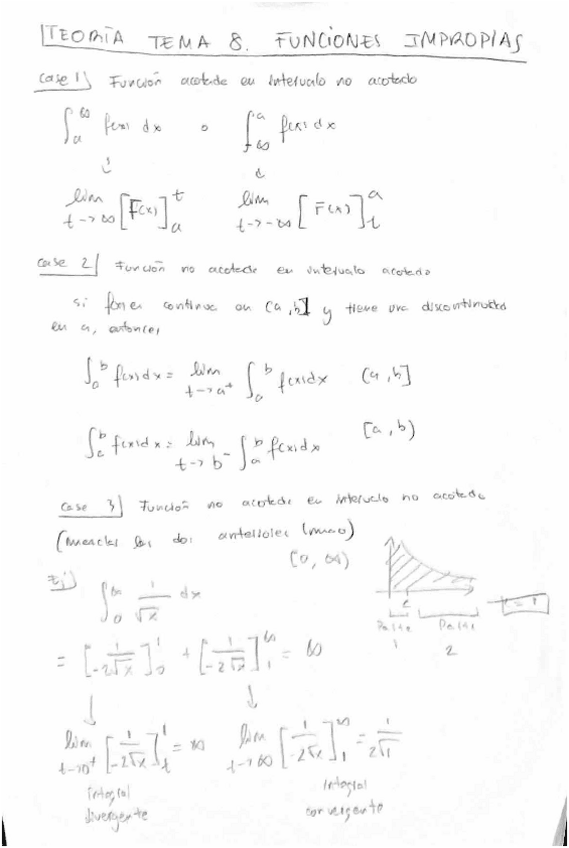 TEORÍA TEMA 8. FUNCIONES IMPROPIAS
Case 1) Función acotada en intervalo no acotado
∫_a^∞ f(x) dx o ∫_-∞^a f(x) dx
↓ ↓
lim t→∞ [F(x)]_a^t lim t→-∞ [F(x)]_t^a
Case 2) Función no acotada en intervalo acotado
Si f(x) es continua en (a,b] y tiene una discontinuidad
en a, entonces
∫_a^b f(x)dx = lim t→a⁺ ∫_a^b f(x)dx (a,b]
∫_a^b f(x)dx = lim t→b⁻ ∫_a^b f(x)dx [a,b)
Case 3) Función no acotada en intervalo no acotado
(mezcla las dos anteriores
(0, ∞)
Ej)
∫_0^∞ 1/√x dx
c t=1
Parte 1 Parte 2
= [1/-2√x]_0^1 + [1/-2√x]_1^∞ = ∞
↓ ↓
lim t→0⁺ [1/-2√x]_t^1 = ∞ lim t→∞ [1/-2√x]_1^∞ = 1/2√1
integral integral
divergente convergente